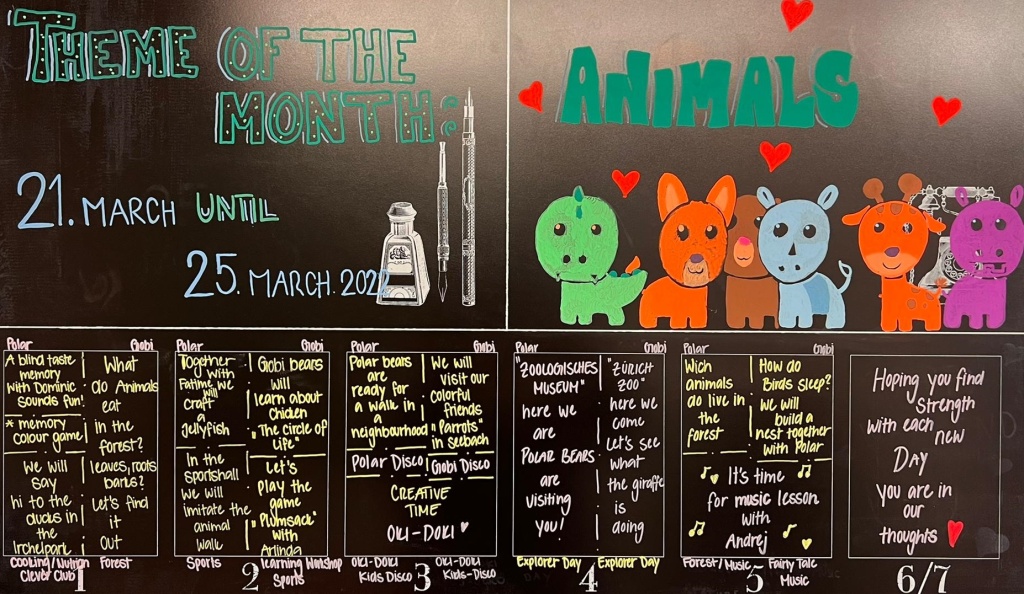 THEME OF THE
MONTH:
21. MARCH UNTIL
25. MARCH. 2022
ANIMALS
Polar Giobi
A blind taste
memory
With Dominic
sounds fun!
* memory
colour game
We will
say
hi to the
ducks in
the
Irchelpark
What
do Animals
eat
in the
forest?
leaves, roots
barks?
Let's find
it
out
Cooking/Nutrion
Clever Club
Forest
1
Polar Giobi
Together
with
Fatime we
will
craft
a
Jellyfish
In the
sportshall
we will
imitate the
animal
walk
Giobi bears
will
learn about
Chicken
"The circle of
life"
Let's
play the
game
"Plumsack"
with
Arlinda
Sports
learning Workshop
Sports
2
Polar Giobi
Polar bears
are
ready for
a walk in
a
neighbourhood
We will
visit our
colorful
friends
"Parrots"
in seebach
Polar Disco
Giobi Disco
CREATIVE
TIME
OKI-DOKI
OKI-DOKI
Kids Disco
OKI-DOKI
Kids-Disco
3
Polar Giobi
"ZOOLOGISCHES
MUSEUM"
here we
are
POLAR BEARS
are
visiting
you!
"ZÜRICH
ZOO"
here we
come
Let's see
what
the giraffe
is
doing
Explorer Day Explorer Day
4
Polar Giobi
Wich
animals
do live in
the
forest
How do
Birds sleep?
We will
build a
nest together
with Polar
It's time
for music lesson
with
Andrej
Forest/Music
Fairy Tale
Music
5
Hoping you find
strength
with each new
DAY
you are in
our
thoughts
6/7